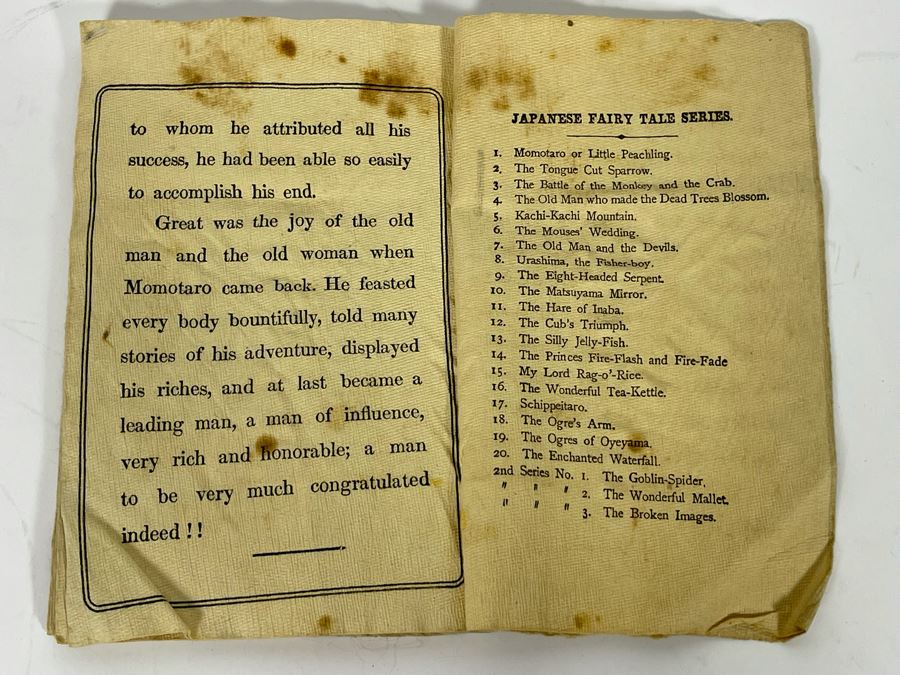 to whom he attributed all his
success, he had been able so easily
to accomplish his end.
Great was the joy of the old
man and the old woman when
Momotaro came back. He feasted
every body bountifully, told many
stories of his adventure, displayed
his riches, and at last became a
leading man, a man of influence,
very rich and honorable; a man
to be very much congratulated
indeed !!
JAPANESE FAIRY TALE SERIES.
1. Momotaro or Little Peachling.
2. The Tongue Cut Sparrow.
3. The Battle of the Monkey and the Crab.
4. The Old Man who made the Dead Trees Blossom.
5. Kachi-Kachi Mountain.
6. The Mouses' Wedding.
7. The Old Man and the Devils.
8. Urashima, the Fisher-boy.
9. The Eight-Headed Serpent.
10. The Matsuyama Mirror.
11. The Hare of Inaba.
12. The Cub's Triumph.
13. The Silly Jelly-Fish.
14. The Princes Fire-Flash and Fire-Fade
15. My Lord Rag-o'-Rice.
16. The Wonderful Tea-Kettle.
17. Schippeitaro.
18. The Ogre's Arm.
19. The Ogres of Oyeyama.
20. The Enchanted Waterfall.
2nd Series No. 1. The Goblin-Spider.
" " " 2. The Wonderful Mallet.
" " " 3. The Broken Images.